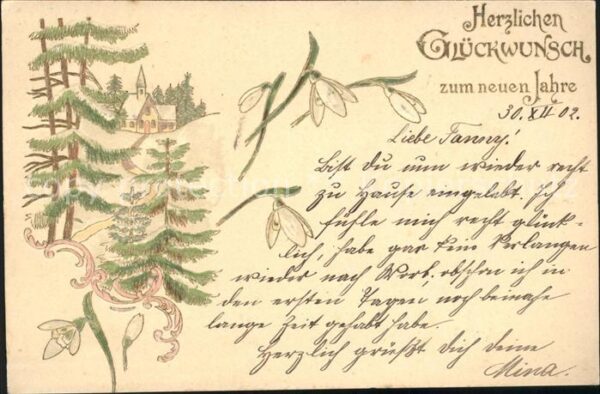 Herzlichen
GLÜCKWUNSCH
zum neuen Jahre
30. XII 02.
Liebe Fanny!
Bist Du nun wieder recht
zu Hause eingelebt. Ich
fühle mich recht glück-
lich, habe gar kein Verlangen
wieder nach Worb, obschon ich in
den ersten Tagen noch beinahe
lange Zeit gehabt habe.
Herzlich grüßt Dich deine
Mina.